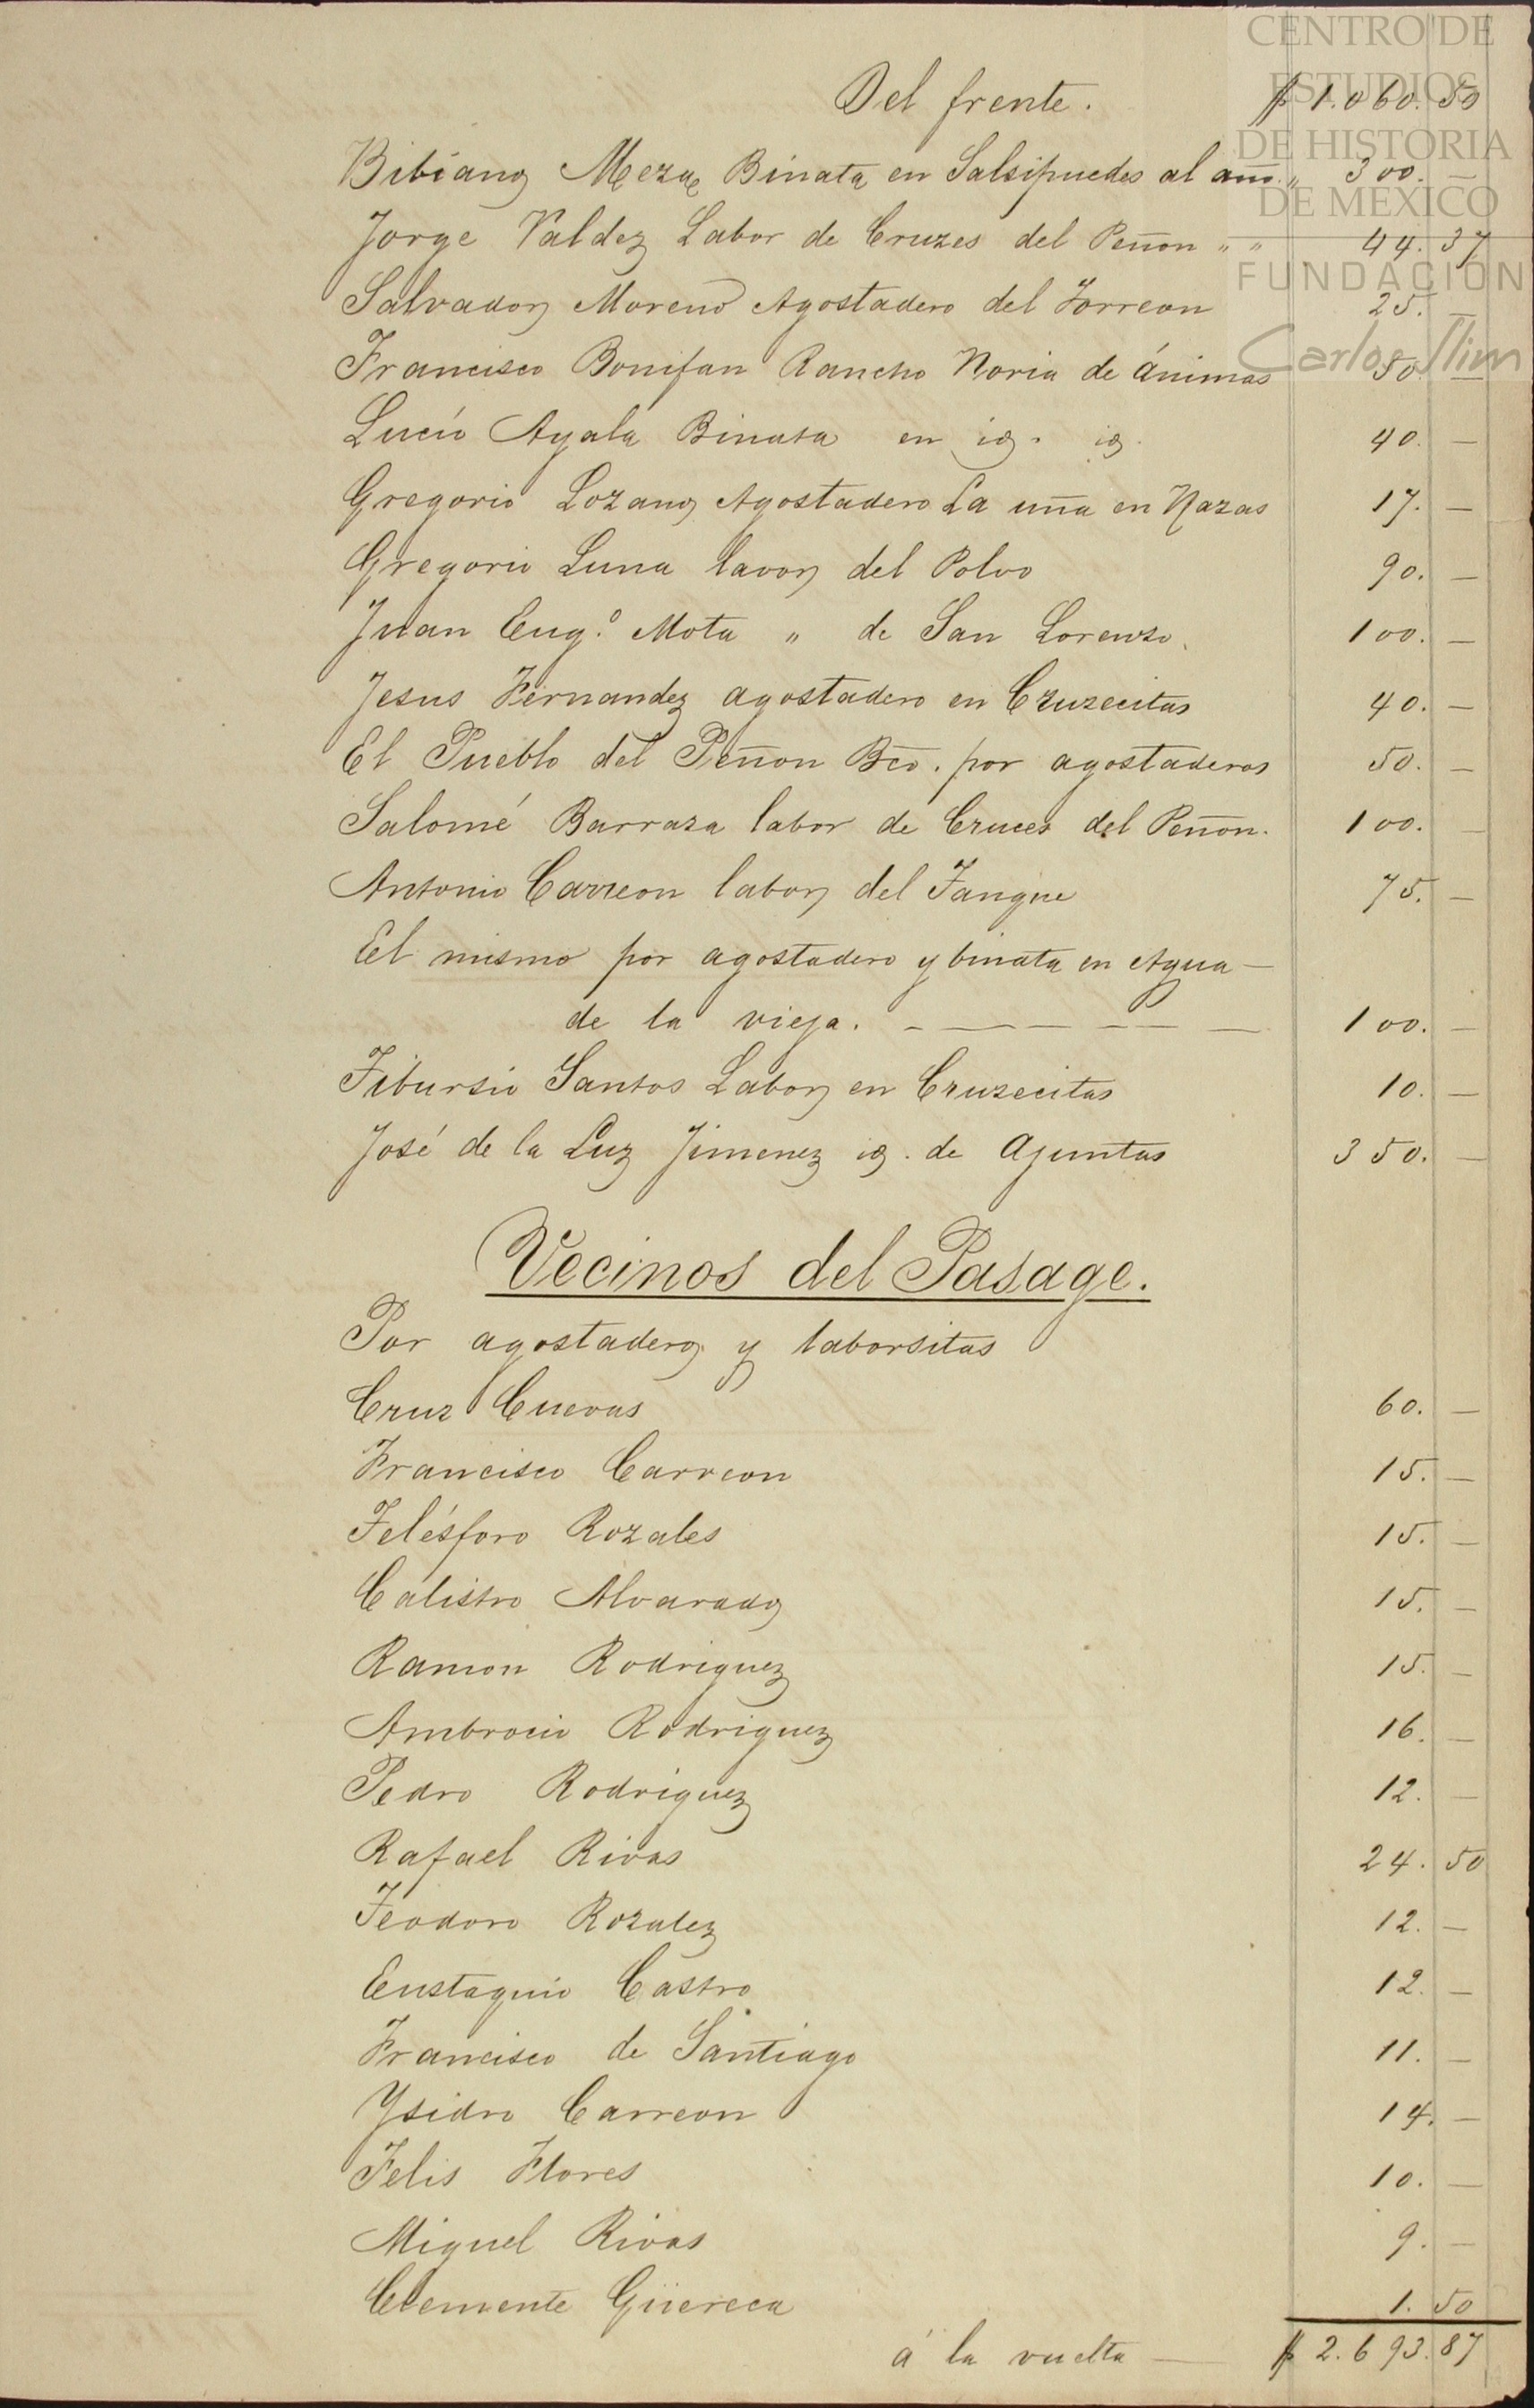 CENTRO DE
ESTUDIOS
DE HISTORIA
DE MEXICO
FUNDACIÓN
Carlos Slim
Del frente. $ 1.060. 50
Bibiano Meza Binata en Salsipuedes al año " 300. —
Jorge Valdez Labor de Cruzes del Peñon " " 44. 37
Salvador Moreno Agostadero del Torreon 25. —
Francisco Bonifan Rancho Noria de ánimas 50. —
Lucío Ayala Binata en id. id. 40. —
Gregorio Lozano Agostadero La uña en Nazas 17. —
Gregorio Luna lavor del Polvo 90. —
Juan Eug.º Mota " de San Lorenzo. 100. —
Jesus Fernandez agostadero en Cruzecitas 40. —
El Pueblo del Peñon Bco. por agostaderos 50. —
Salomé Barraza labor de Cruces del Peñon. 100. —
Antonio Carreon labor del Tanque 75. —
El mismo por agostadero y binata en Agua —
de la vieja. — — — — — — 100. —
Tibursio Santos Labor en Cruzecitas 10. —
José de la Luz Jimenez id. de Ajuntas 350. —
Vecinos del Pasage.
Por agostadero y laborsitas
Cruz Cuevas 60. —
Francisco Carreon 15. —
Telésforo Rozales 15. —
Calistro Alvarado 15. —
Ramon Rodriguez 15. —
Ambrocio Rodriguez 16. —
Pedro Rodriguez 12. —
Rafael Rivas 24. 50
Teodoro Rozalez 12. —
Eustaquio Castro 12. —
Francisco de Santiago 11. —
Ysidro Carreon 14. —
Felis Flores 10. —
Miguel Rivas 9. —
Clemente Güereca 1. 50
á la vuelta — $ 2.693. 87